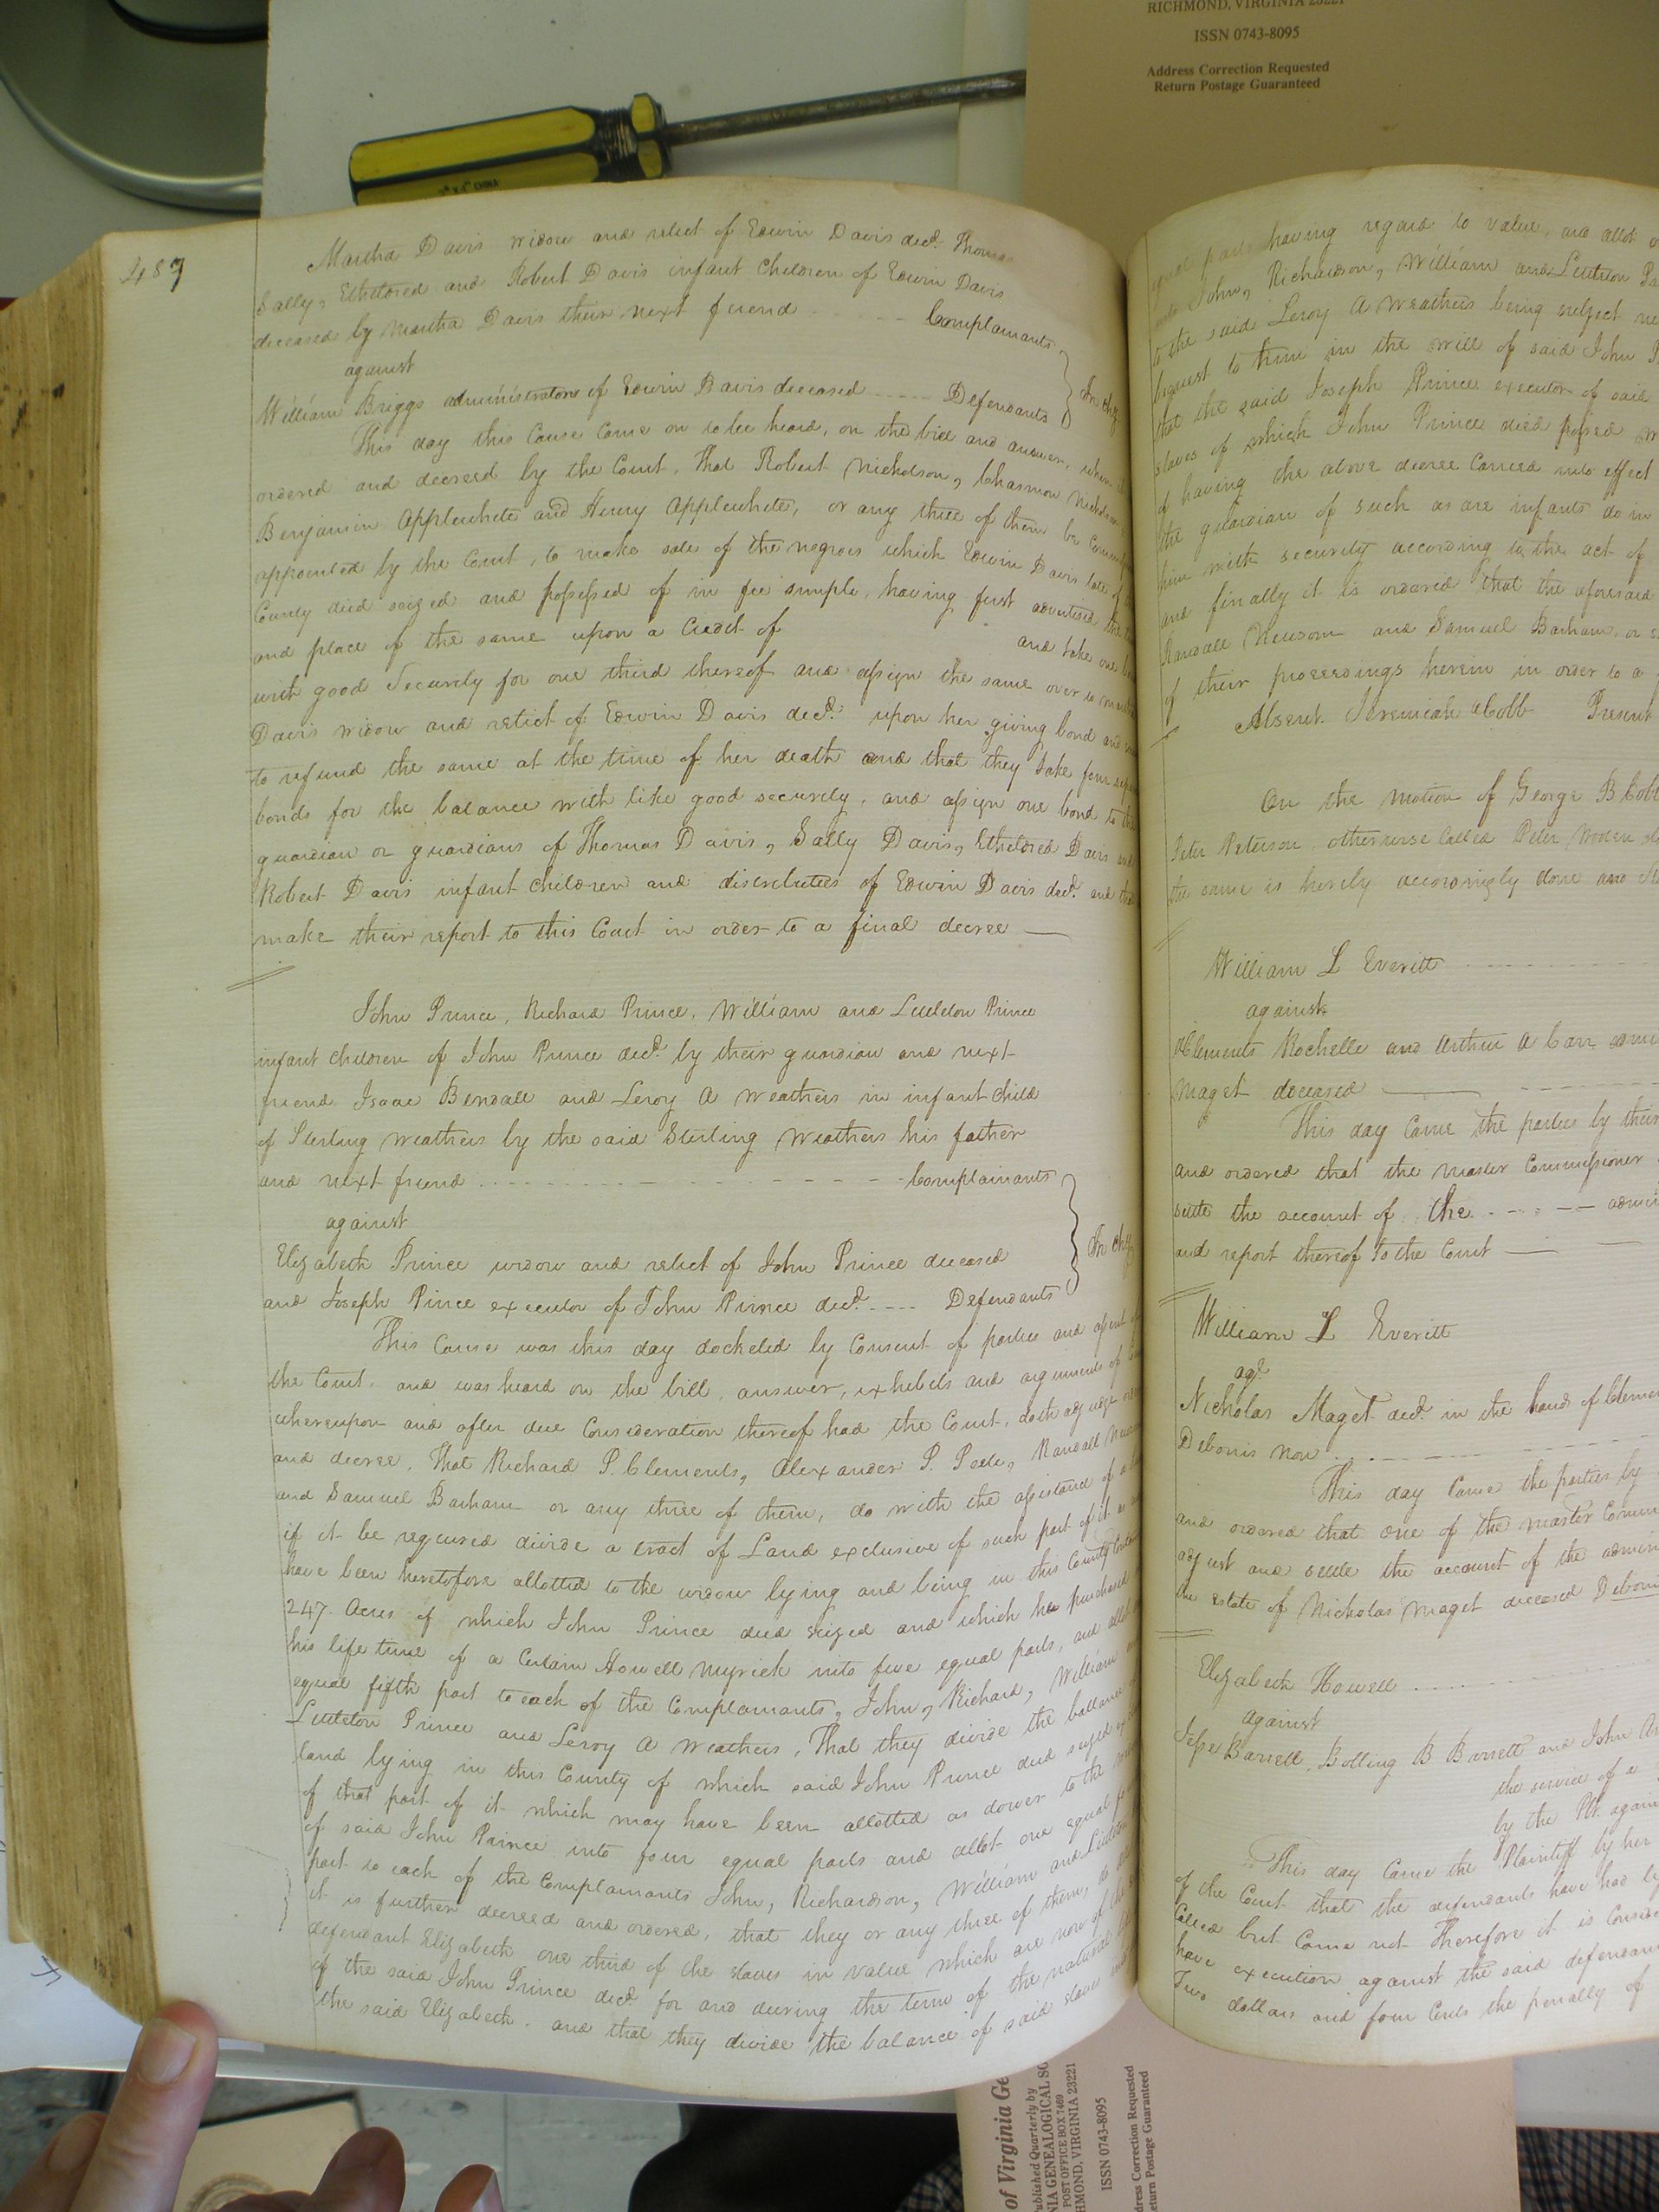 RICHMOND, VIRGINIA 23221
ISSN 0743-8095
Address Correction Requested
Return Postage Guaranteed
487
Martha Davis widow and relict of Edwin Davis decd. Thomas
Sally, Etheldred and Robert Davis infant Children of Edwin Davis
deceased by Martha Davis their next friend Complainants
against
William Briggs administrator of Edwin Davis deceased Defendants
In chy
This day this Cause Came on to be heard, on the bill and answer, when it
ordered and decreed by the Court, That Robert Nicholson, Charmon Nicholson,
Benjamin Applewhite and Henry Applewhite, or any three of them be
appointed by the Court, to make sale of the negroes which Edwin Davis late of
County died seized and possessed of in fee simple, having first advertised the
and place of the same upon a Credit of and take one
with good Security for one third thereof and assign the same over to
Davis widow and relict of Edwin Davis decd. upon her giving bond and
to refund the same at the time of her death and that they take four
bonds for the balance with like good security, and assign one bond to the
guardian or guardians of Thomas Davis, Sally Davis, Etheldred Davis and
Robert Davis infant children and distributees of Edwin Davis decd. and
make their report to this Court in order to a final decree
John Prince, Richard Prince, William and Littleton Prince
infant Children of John Prince decd. by their guardian and next
friend Isaac Bendall and Leroy A Weathers in infant child
of Sterling Weathers by the said Sterling Weathers his father
and next friend Complainants
against
In chy
Elizabeth Prince widow and relict of John Prince deceased
and Joseph Prince executor of John Prince decd. Defendants
This Cause was this day docketed by Consent of parties and assent of
the Court, and was heard on the bill, answer, exhibits and arguments of
whereupon and after due Consideration thereof had the Court, doth adjudge
and decree, That Richard P. Clements, Alexander P. Peete, Randall
and Samuel Barham or any three of them, do with the assistance of a
if it be required divide a tract of Land exclusive of such part of it as
have been heretofore allotted to the widow lying and being in this County
247. Acres of which John Prince died seized and which he purchased
his life time of a Certain Howell Myrick into five equal parts, and allot
equal fifth part to each of the Complainants, John, Richard, William
Littleton Prince and Leroy A Weathers, That they divide the ballance
land lying in this County of which said John Prince died seized
of that part of it which may have been allotted as dower to the
of said John Prince into four equal parts and allot one equal
part to each of the Complainants John, Richardson, William and
it is further decreed and ordered, that they or any three of them, do
defendant Elizabeth one third of the slaves in value which are now of the
of the said John Prince decd. for and during the term of the natural
the said Elizabeth. and that they divide the balance of said slaves
equal parts having regard to value, and allot
John, Richardson, William and Littleton
to the said Leroy A Weathers being subject
bequest to him in the will of said John
that the said Joseph Prince executor of said
slaves of which John Prince died possed
of having the above decree Carried into effect
the guardian of such as are infants do in
him with security according to the act of
and finally it is ordered that the aforesaid
Randall Newsom and Samuel Barham, or
of their proceedings herein in order to a
Absent. Jeremiah Cobb Present
On the motion of George B Cobb
Peter Peterson, otherwise Called Peter
the same is hereby accordingly done and
William L Everitt
against
Clements Rochelle and Arthur A Carr
Maget deceased
This day Came the parties by their
and ordered that the master Commissioner
settle the account of the
and report thereof to the Court
William L Everitt
agt.
Nicholas Maget decd. in the hands of
Debonis Non
This day Came the parties by
and ordered that one of the master
adjust and settle the account of the
the estate of Nicholas Maget deceased
Elizabeth Howell
against
Jesse Barrett, Bolling B Barrett and John
the service of a
by the Plt. again
This day Came the Plaintiff by her
of the Court that the defendants have had
Called but Came not Therefore it is
have execution against the said
Two dollars and four Cents the penalty of
of Virginia Ge
ublished Quarterly by
IA GENEALOGICAL SO
POST OFFICE BOX 7469
HMOND, VIRGINIA 23221
ISSN 0743-8095
dress Correction Requested
eturn Postage Guaranteed